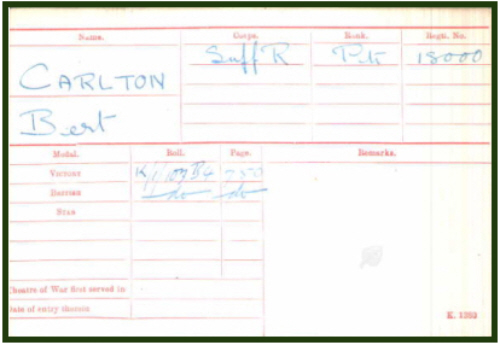 Name. Corps. Rank. Regtl. No.
CARLTON Suff R Pte 18000
Bert
Medal. Roll. Page. Remarks.
Victory K/1/109 B4
British do do
Star
Theatre of War first served in
Date of entry therein
K. 1380